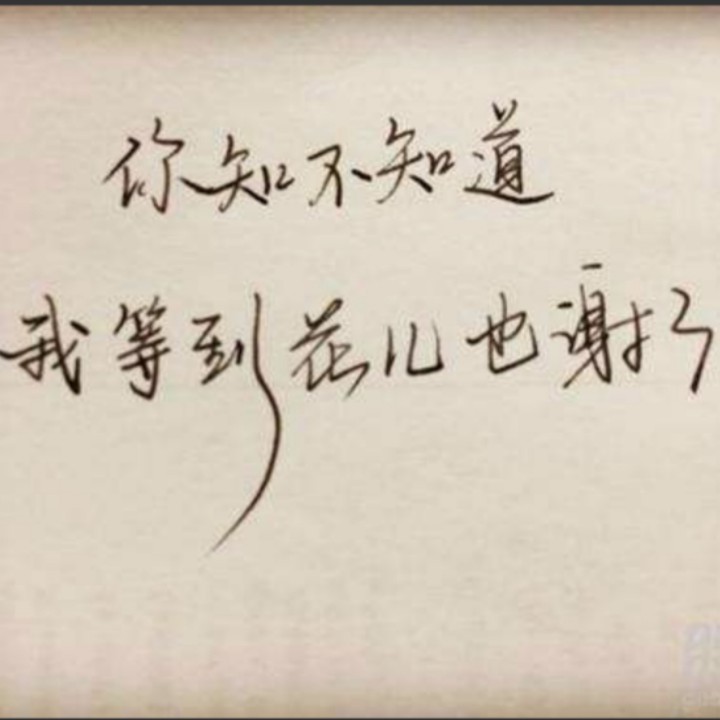 你知不知道
我等到花儿也谢了